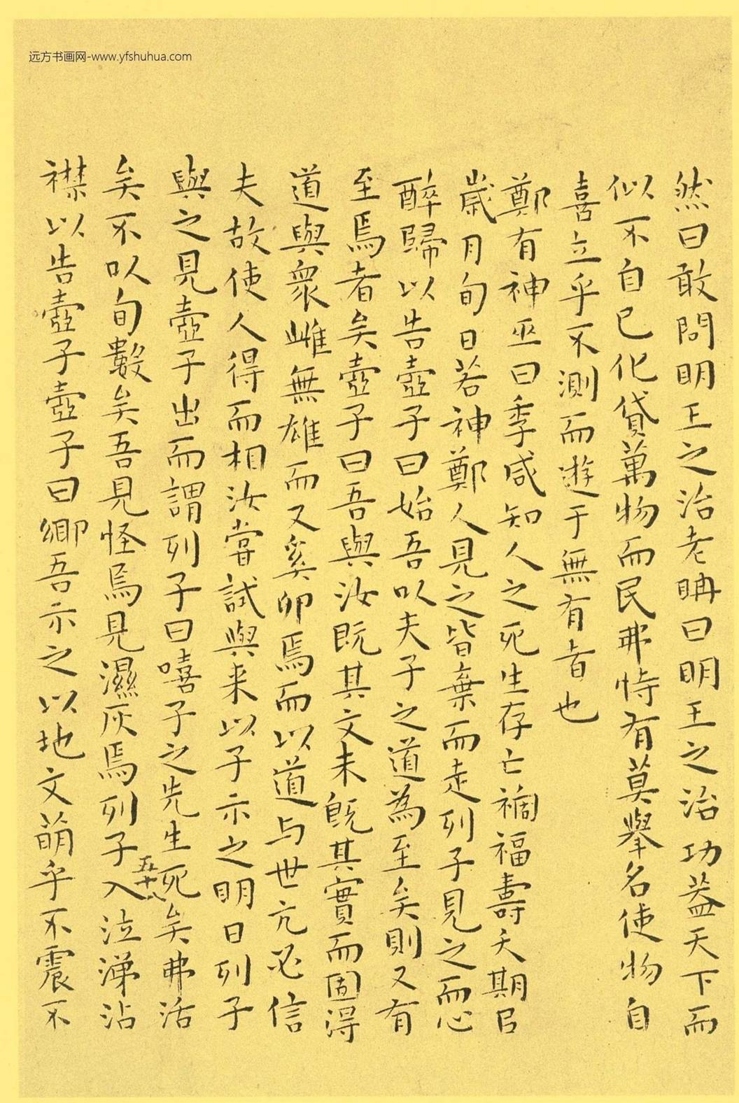 远方书画网-www.yfshuhua.com
然曰敢問明王之治老聃曰明王之治功蓋天下而
似不自已化貸萬物而民弗恃有莫舉名使物自
喜立乎不測而遊于無有者也
鄭有神巫曰季咸知人之死生存亡禍福壽夭期㠯
歲月旬日若神鄭人見之皆棄而走列子見之而心
醉歸以告壺子曰始吾以夫子之道為至矣則又有
至焉者矣壺子曰吾與汝既其文未既其實而固得
道與衆雌無雄而又奚卵焉而以道与世亢必信
夫故使人得而相汝嘗試與来以子示之明日列子
與之見壺子出而謂列子曰嘻子之先生死矣弗活
矣不以旬數矣吾見怪焉見濕灰焉列子入泣涕沾
襟以告壺子壺子曰鄉吾示之以地文萌乎不震不
五十八